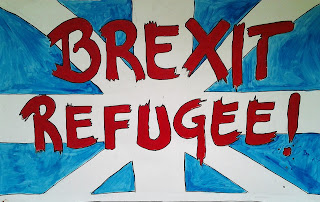 BREXIT
REFUGEE!